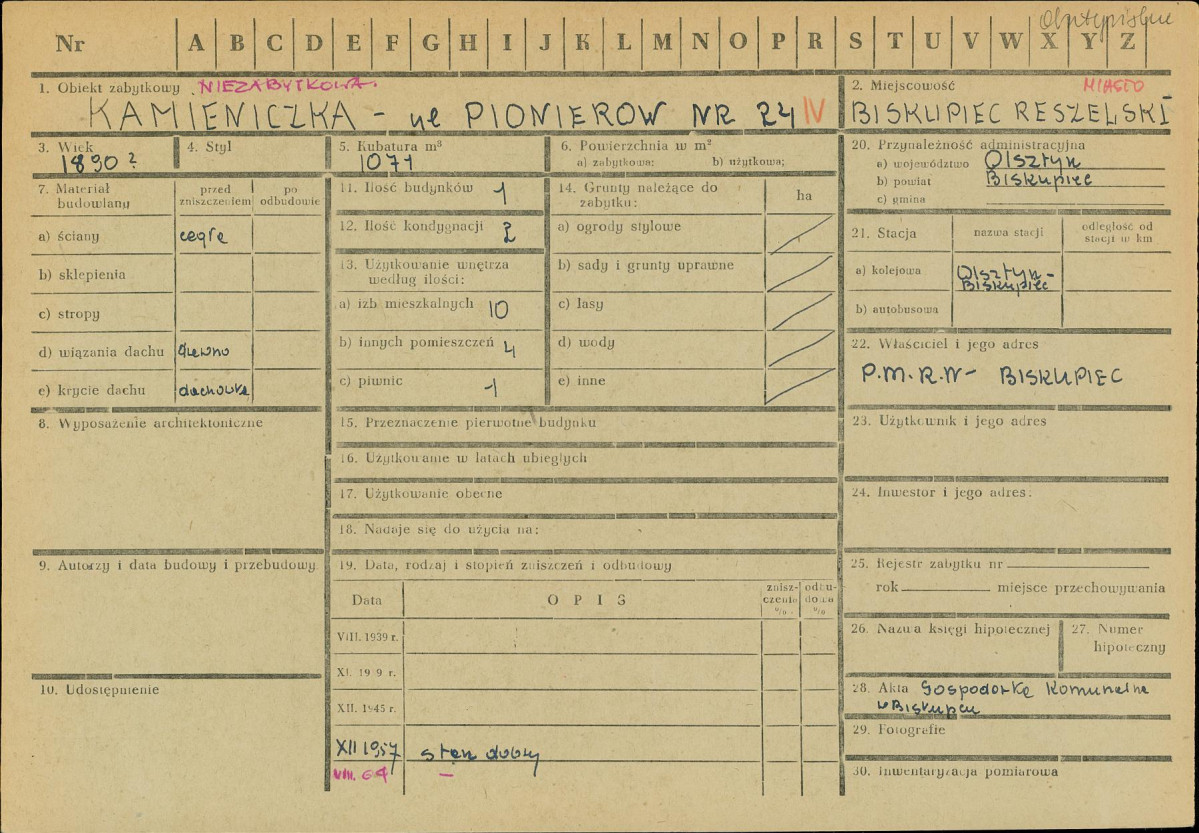 Nr A B C D E F G H I J K L M N O P R S T U V W X Y Z
1. Obiekt zabytkowy NIEZABYTKOWA.
KAMIENICZKA – ul PIONIERÓW NR 24 IV
2. Miejscowość MIASTO
BISKUPIEC RESZELSKI
3. Wiek
1890?
4. Styl
5. Kubatura m³
1071
6. Powierzchnia w m²
a) zabytkowa; b) użytkowa;
7. Materiał budowlany
przed zniszczeniem
po odbudowie
a) ściany cegła
b) sklepienia
c) stropy
d) wiązania dachu drewno
e) krycie dachu dachówka
8. Wyposażenie architektoniczne
9. Autorzy i data budowy i przebudowy
10. Udostępnienie
11. Ilość budynków 1
12. Ilość kondygnacji 2
13. Użytkowanie wnętrza
według ilości:
a) izb mieszkalnych 10
b) innych pomieszczeń 4
c) piwnic 1
14. Grunty należące do
zabytku:
ha
a) ogrody stylowe
b) sady i grunty uprawne
c) lasy
d) wody
e) inne
15. Przeznaczenie pierwotne budynku
16. Użytkowanie w latach ubiegłych
17. Użytkowanie obecne
18. Nadaje się do użycia na:
19. Data, rodzaj i stopień zniszczeń i odbudowy
Data
OPIS
znisz-
czenia
%
odbu-
dowa
%
VIII. 1939 r.
XI. 1939 r.
XII. 1945 r.
XII 1957 stan dobry
VIII. 64 –
20. Przynależność administracyjna
a) województwo Olsztyn
b) powiat Biskupiec
c) gmina
21. Stacja
nazwa stacji
odległość od
stacji w km
a) kolejowa Olsztyn-
Biskupiec
b) autobusowa
22. Właściciel i jego adres
P.M.R.N- BISKUPIEC
23. Użytkownik i jego adres
24. Inwestor i jego adres:
25. Rejestr zabytku nr
rok miejsce przechowywania
26. Nazwa księgi hipotecznej
27. Numer
hipoteczny
28. Akta Gospodarka Komunalna
w Biskupcu
29. Fotografie
30. Inwentaryzacja pomiarowa